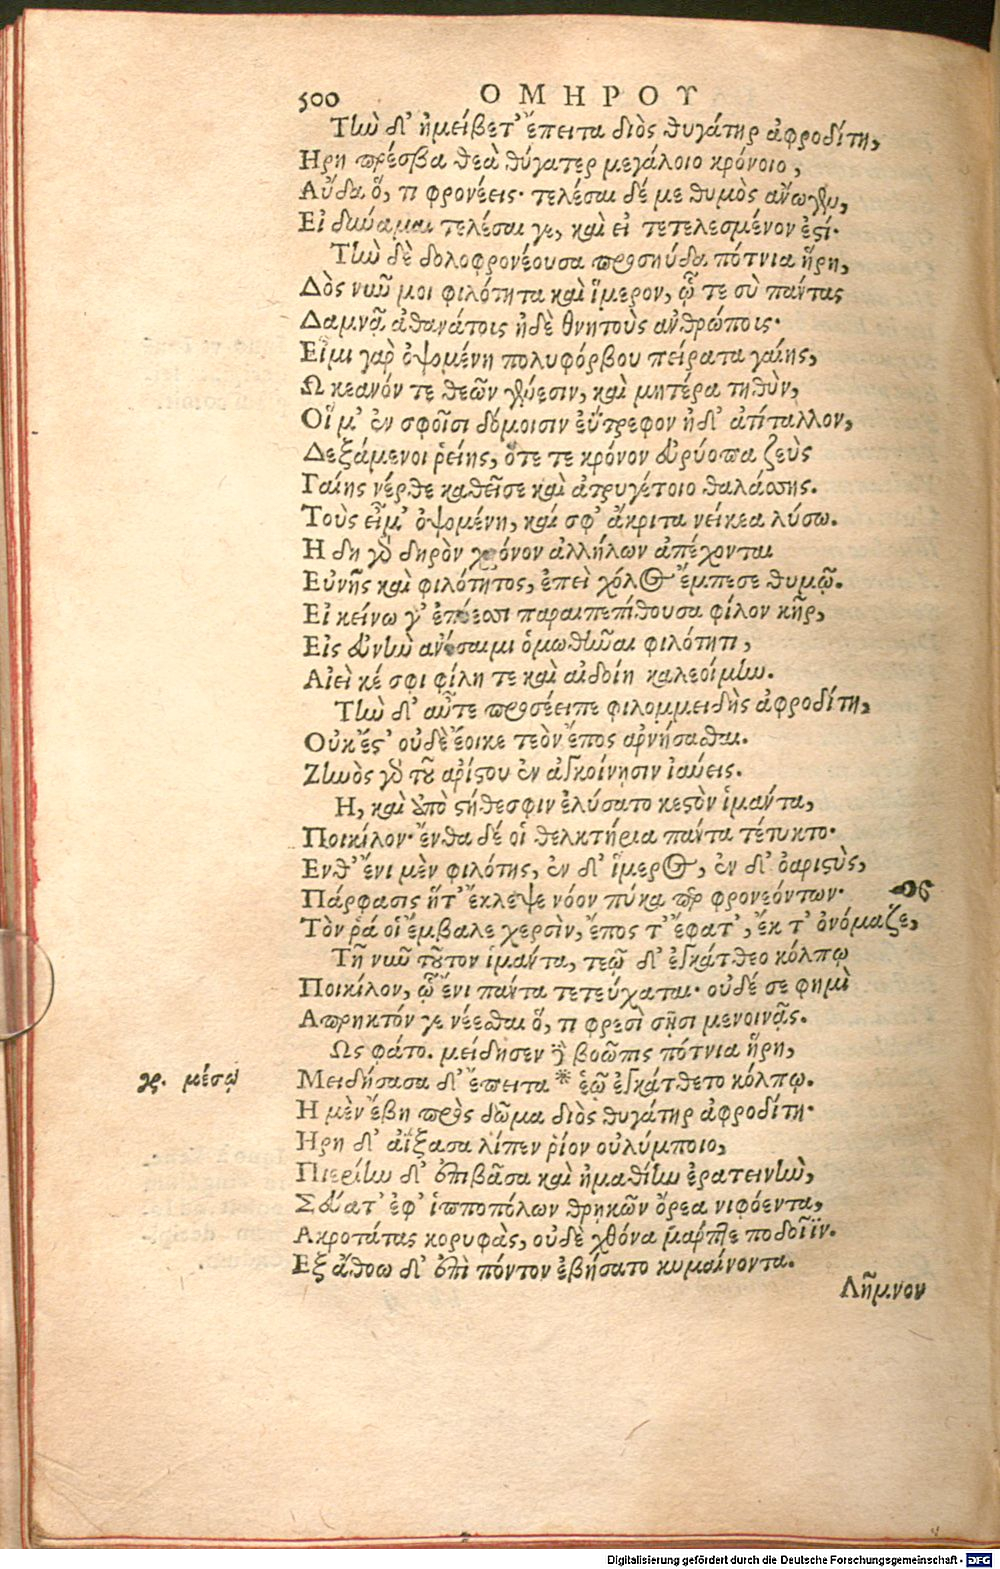 500 ΟΜΗΡΟΥ
Τὴν δ' ἠμείβετ' ἔπειτα διὸς θυγάτηρ ἀφροδίτη,
Ηρη πρέσβα θεὰ θύγατερ μεγάλοιο κρόνοιο,
Αὔδα ὅ, τι φρονέεις· τελέσαι δέ με θυμὸς ἄνωγεν,
Εἰ δύναμαι τελέσαι γε, καὶ εἰ τετελεσμένον ἐστί·
Τὴν δὲ δολοφρονέουσα προσηύδα πότνια ἥρη,
Δὸς νῦν μοι φιλότητα καὶ ἵμερον, ᾧ τε σὺ πάντας
Δαμνᾷ ἀθανάτοις ἠδὲ θνητοὺς ἀνθρώποις·
Εἶμι γὰρ ὀψομένη πολυφόρβου πείρατα γαίης,
Ωκεανόν τε θεῶν γένεσιν, καὶ μητέρα τηθὺν,
Οἵ μ' ἐν σφοῖσι δόμοισιν εὔτρεφον ἠδ' ἀτίταλλον,
Δεξάμενοι ῥείης, ὅτε τε κρόνον εὐρύοπα ζεὺς
Γαίης νέρθε καθεῖσε καὶ ἀτρυγέτοιο θαλάσσης.
Τοὺς εἶμ' ὀψομένη, καί σφ' ἄκριτα νείκεα λύσω.
Η δη γὰρ δηρὸν χρόνον ἀλλήλων ἀπέχονται
Εὐνῆς καὶ φιλότητος, ἐπεὶ χόλος ἔμπεσε θυμῷ.
Εἰ κείνω γ' ἐπέεσσι παραιπεπίθουσα φίλον κῆρ,
Εἰς εὐνὴν ἀνέσαιμι ὁμωθῆναι φιλότητι,
Αἰεὶ κέ σφι φίλη τε καὶ αἰδοίη καλεοίμην.
Τὴν δ' αὖτε προσέειπε φιλομμειδὴς ἀφροδίτη,
Οὐκ ἔστ' οὐδὲ ἔοικε τεὸν ἔπος ἀρνήσασθαι.
Ζηνὸς γὰρ τοῦ ἀρίστου ἐν ἀγκοίνησιν ἰαύεις.
Η, καὶ ἀπὸ στήθεσφιν ἐλύσατο κεστὸν ἱμάντα,
Ποικίλον· ἔνθα δέ οἱ θελκτήρια πάντα τέτυκτο·
Ενθ' ἔνι μὲν φιλότης, ἐν δ' ἵμερος, ἐν δ' ὀαριστὺς,
Πάρφασις ἥτ' ἔκλεψε νόον πύκα περ φρονεόντων·
Τὸν ῥά οἱ ἔμβαλε χερσὶν, ἔπος τ' ἔφατ', ἔκ τ' ὀνόμαζε,
Τῆ νῦν τοῦτον ἱμάντα, τεῷ δ' ἐγκάτθεο κόλπῳ
Ποικίλον, ᾧ ἔνι πάντα τετεύχαται· οὐδέ σε φημὶ
Απρηκτόν γε νέεσθαι ὅ, τι φρεσὶ σῇσι μενοινᾷς.
Ως φάτο. μείδησεν δὲ βοῶπις πότνια ἥρη,
γρ. μέσῳ Μειδήσασα δ' ἔπειτα * ἑῷ ἐγκάτθετο κόλπῳ.
Η μὲν ἔβη πρὸς δῶμα διὸς θυγάτηρ ἀφροδίτη·
Ηρη δ' ἀΐξασα λίπεν ῥίον οὐλύμποιο,
Πιερίην δ' ἐπιβᾶσα καὶ ἠμαθίην ἐρατεινὴν,
Σεύατ' ἐφ' ἱπποπόλων θρηκῶν ὄρεα νιφόεντα,
Ακροτάτας κορυφὰς, οὐδὲ χθόνα μάρπτε ποδοῖϊν.
Εξ ἄθοω δ' ἐπὶ πόντον ἐβήσατο κυμαίνοντα.
Λῆμνον
Digitalisierung gefördert durch die Deutsche Forschungsgemeinschaft - DFG